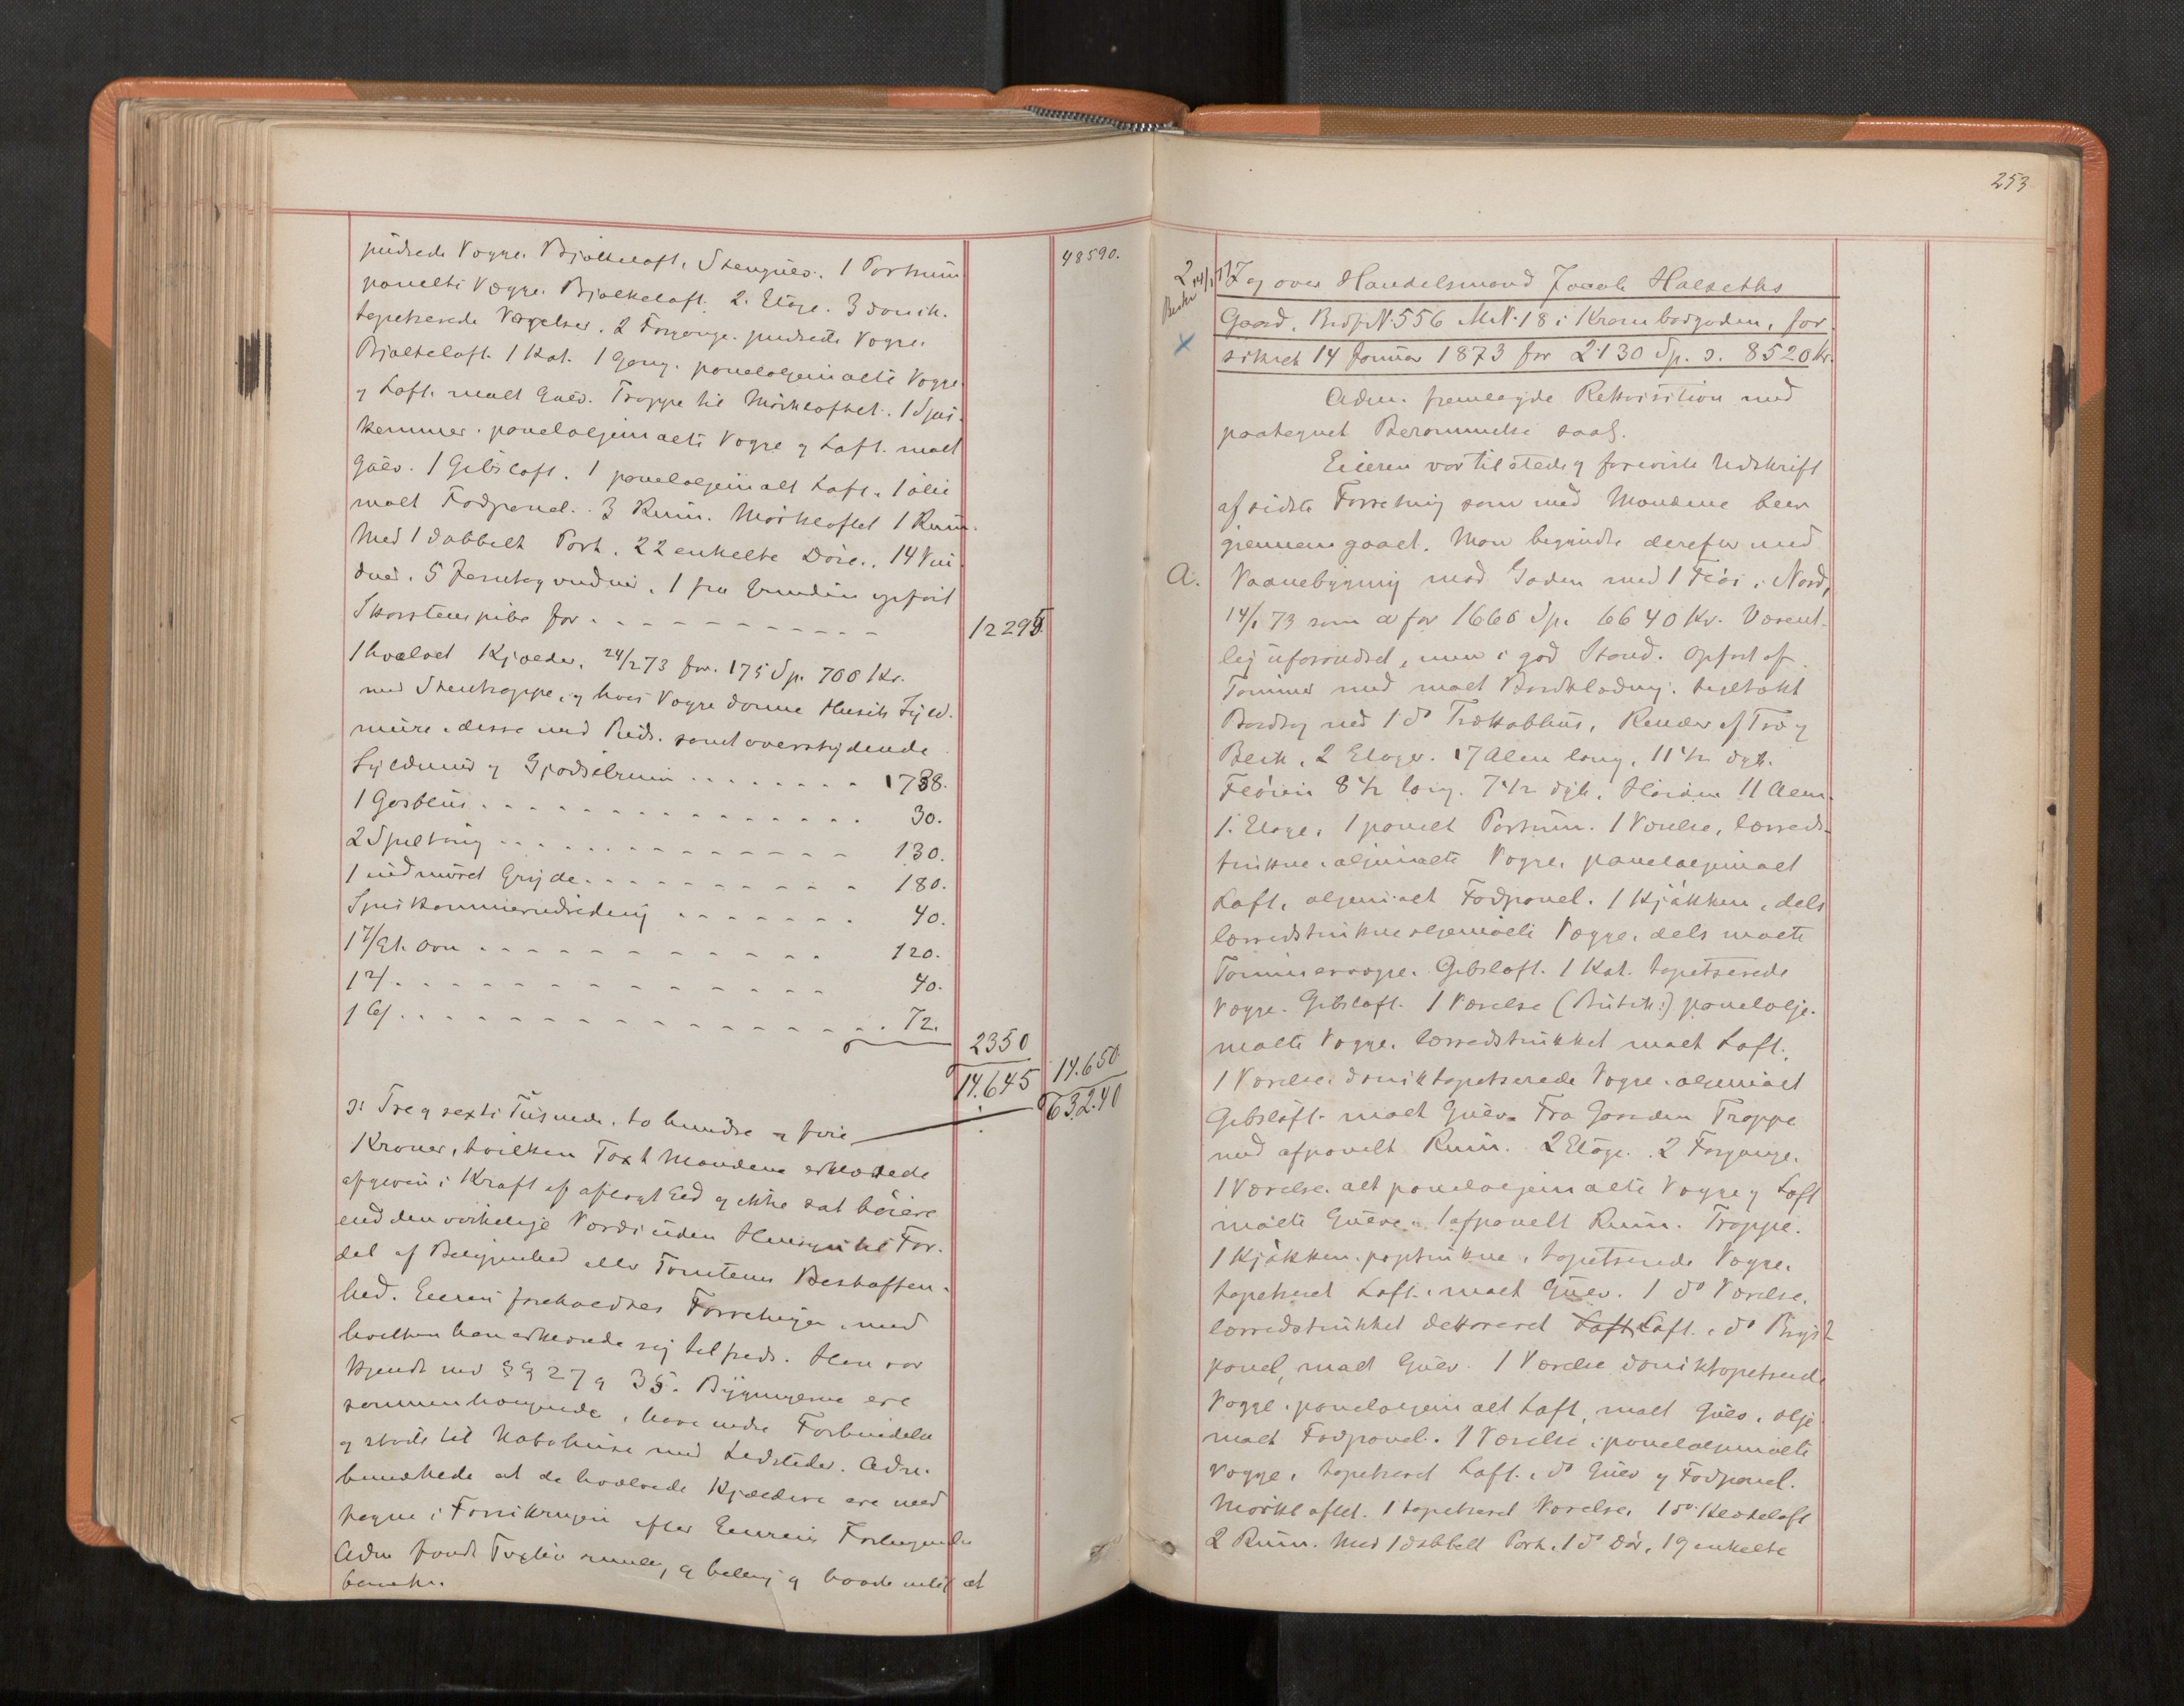 48590.
pudsede Vægge. Bjælkeloft. Stengulv. 1 Portrum
panelte Vægge. Bjælkeloft. 2. Etage. 3 donik.
tapetserede Værelser. 2 Forgange. pudsede Vægge.
Bjælkeloft. 1 Kat. 1 Gang. paneloljemalte Vægge
og Loft. malt Gulv. Trappe til Mørkloftet. 1 Spis-
kammer. paneloljemalte Vægge og Loft. malt
Gulv. 1 Gibsloft. 1 paneloljemalt Loft. 1 olie
malt Fodpanel. 3 Rum. Mørkloftet 1 Rum.
Med 1 dobbelt Port. 22 enkelte Døre. 14 Vin
duer. 5 Jerntagvinduer. 1 fra Grunden opført
Skorstenspibe for - - - - - - - - - - 12295.
1 hvælvet Kjælder. 24/2 73 for 175 Sp. 700 Kr.
med Stentrappe, og hvis Vægge danne Husets Syld-
mure. disse med Puds. samt overskydende
Syldmur og Gjødselrum . . . . . . . 1738.
1 Gasblus . . . . . . . . . . . 30.
2 Spiltoug - - - - - - - - - - 130.
1 indmuret Gryde. - - - - - - - - 180.
Spiskammerindredning - - - - - - 40.
1 7/Et. Ovn - - - - - - - - - 120.
1 2/ . - - - - - - - - - - - 40.
1 6/ . . - - - - - - - - - - - 72.
2350
14.645 14.650
63.240
ɔ: Tre og sexti Tusinde, to hundre og førti
Kroner, hvilken Taxt Mændene erklærede
afgiven i Kraft af aflagt Eed og ikke sat høiere
end den virkelige Værdi uden Hensyn til For-
del af Beliggenhed eller Tomtens Beskaffen-
hed. Eieren foreholdtes Forretningen, med
hvilken han erklærede sig tilfreds. Han var
kjendt med §§ 27 og 35. Bygningerne ere
sammenhængende, have indre Forbindelse
og støde til Nabohuse med Ledsteder. Adm.
bemærkede at de hvælvede Kjældere ere med
tagne i Forsikringen efter Eierens Forlangende
Adm fandt Taxten rimelig, og belæg og havde intet at
bemærke.
253
2 Tog over Handelsmand Jacob Halseths
Gaard, BrdfN. 556 M.N. 18 i Krambodgaden, for
sikret 14 Januar 1873 for 2130 Sp. ɔ. 8520 Kr.
Adm. fremlagde Rekvisition med
paategnet Berammelse saal.
Eieren var tilstede og foreviste Udskrift
af sidste Forretning som med Mændene blev
gjennemgaaet. Man begyndte derefter med
A. Vaanebygning mod Gaden med 1 Fløi i Nord,
14/1 73 som a for 1660 Sp. 6640 Kr. Væsent-
lig uforandret, men i god Stand. Opført af
Tømmer med malt Bordklædning. teglsten
Bordtag med 1 do Trækobbhus, Render af Træ og
Blik, 2 Etager. 17 Alen lang, 11 1/2 dyb.
Fløien 8 1/2 lang. 7 1/2 dyb. Høiden 11 Alen.
1. Etage. 1 panelt Portrum. 1 Værelse, lærreds-
trukne oljemalte Vægge. paneloljemalt
Loft. oljemalt Fodpanel. 1 Kjøkken, dels
lærredstrukne oljemalte Vægge, dels malte
Tømmervægge. Gibsloft. 1 Kat. tapetserede
Vægge. Gibsloft. 1 Værelse (Butik:) panelolje-
malte Vægge. lærredstrukket malt Loft.
1 Værelse. doniktapetserede Vægge. oljemalet
Gibsloft. malt Gulv. Fra Gaarden Trappe
med afpanelt Rum. 2 Etage. 2 Forgange.
1 Værelse. alt paneloljemalte Vægge og Loft
malte Gulve. 1 afpanelt Rum. Trappe.
1 Kjøkken. paptrukne, tapetserede Vægge.
tapetseret Loft. malt Gulv. 1 do Værelse.
lærredstrukket dekoreret Loft, Loft. do Bryst
panel, malt Gulv. 1 Værelse doniktapetserede
Vægge. paneloljemalt Loft, malt Gulv. olje
malt Fodpanel. 1 Værelse. paneloljemalte
Vægge. tapetseret Loft. do Gulv og Fodpanel.
Mørkloftet. 1 tapetseret Værelse. 1 do. Klædeloft
2 Rum. Med 1 dobbelt Port. 1 do Dør. 19 enkelte